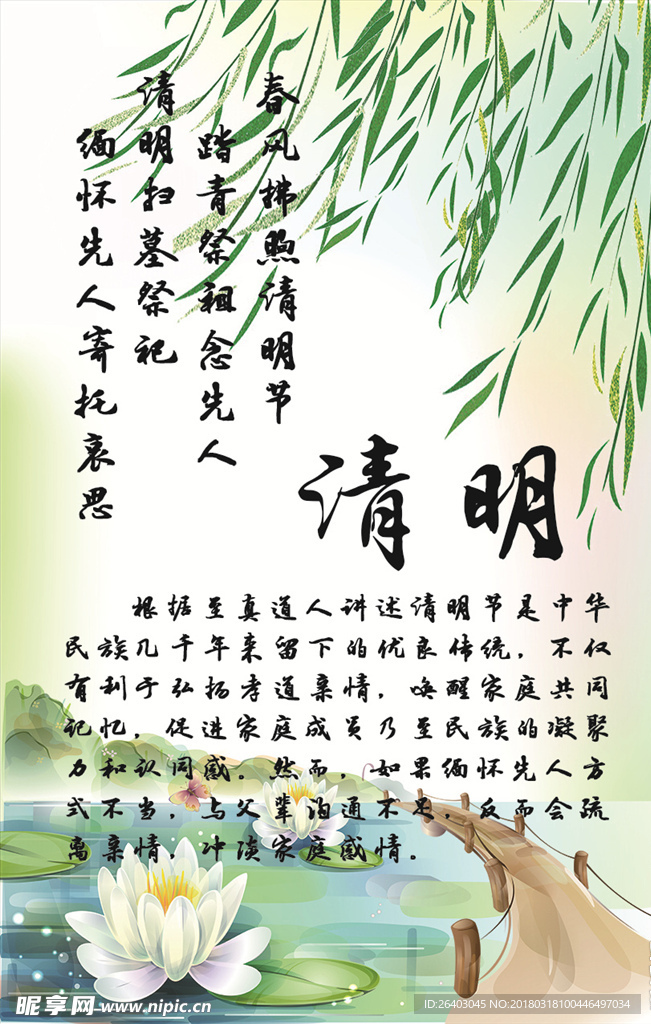 春风拂煦清明节
踏青祭祖念先人
清明扫墓祭祀
缅怀先人寄托哀思
清明
根据至真道人讲述清明节是中华
民族几千年来留下的优良传统，不仅
有利于弘扬孝道亲情，唤醒家庭共同
记忆，促进家庭成员乃至民族的凝聚
力和认同感。然而，如果缅怀先人方
式不当，与父辈沟通不足，反而会疏
离亲情，冲淡家庭感情。
昵享网 www.nipic.cn
ID:26403045 NO:20180318100446497034